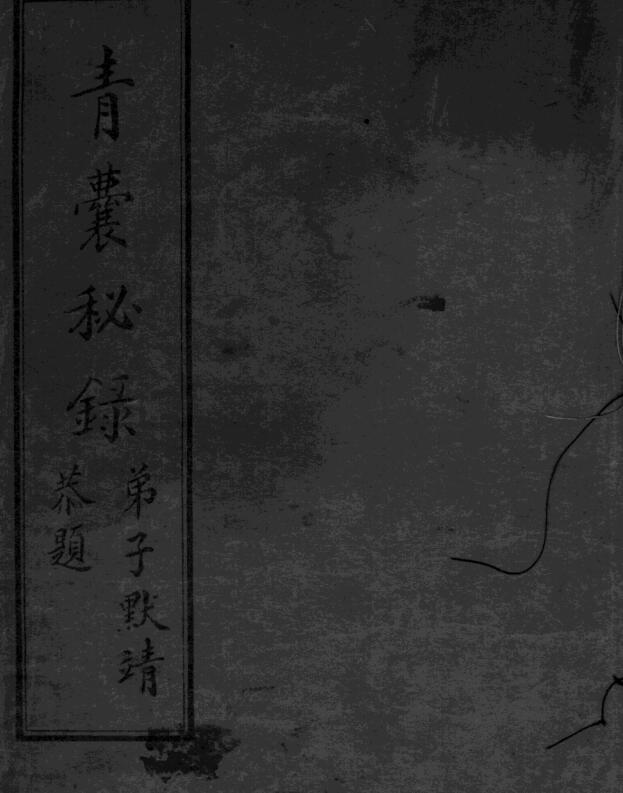 青囊秘録
弟子默靖
恭題